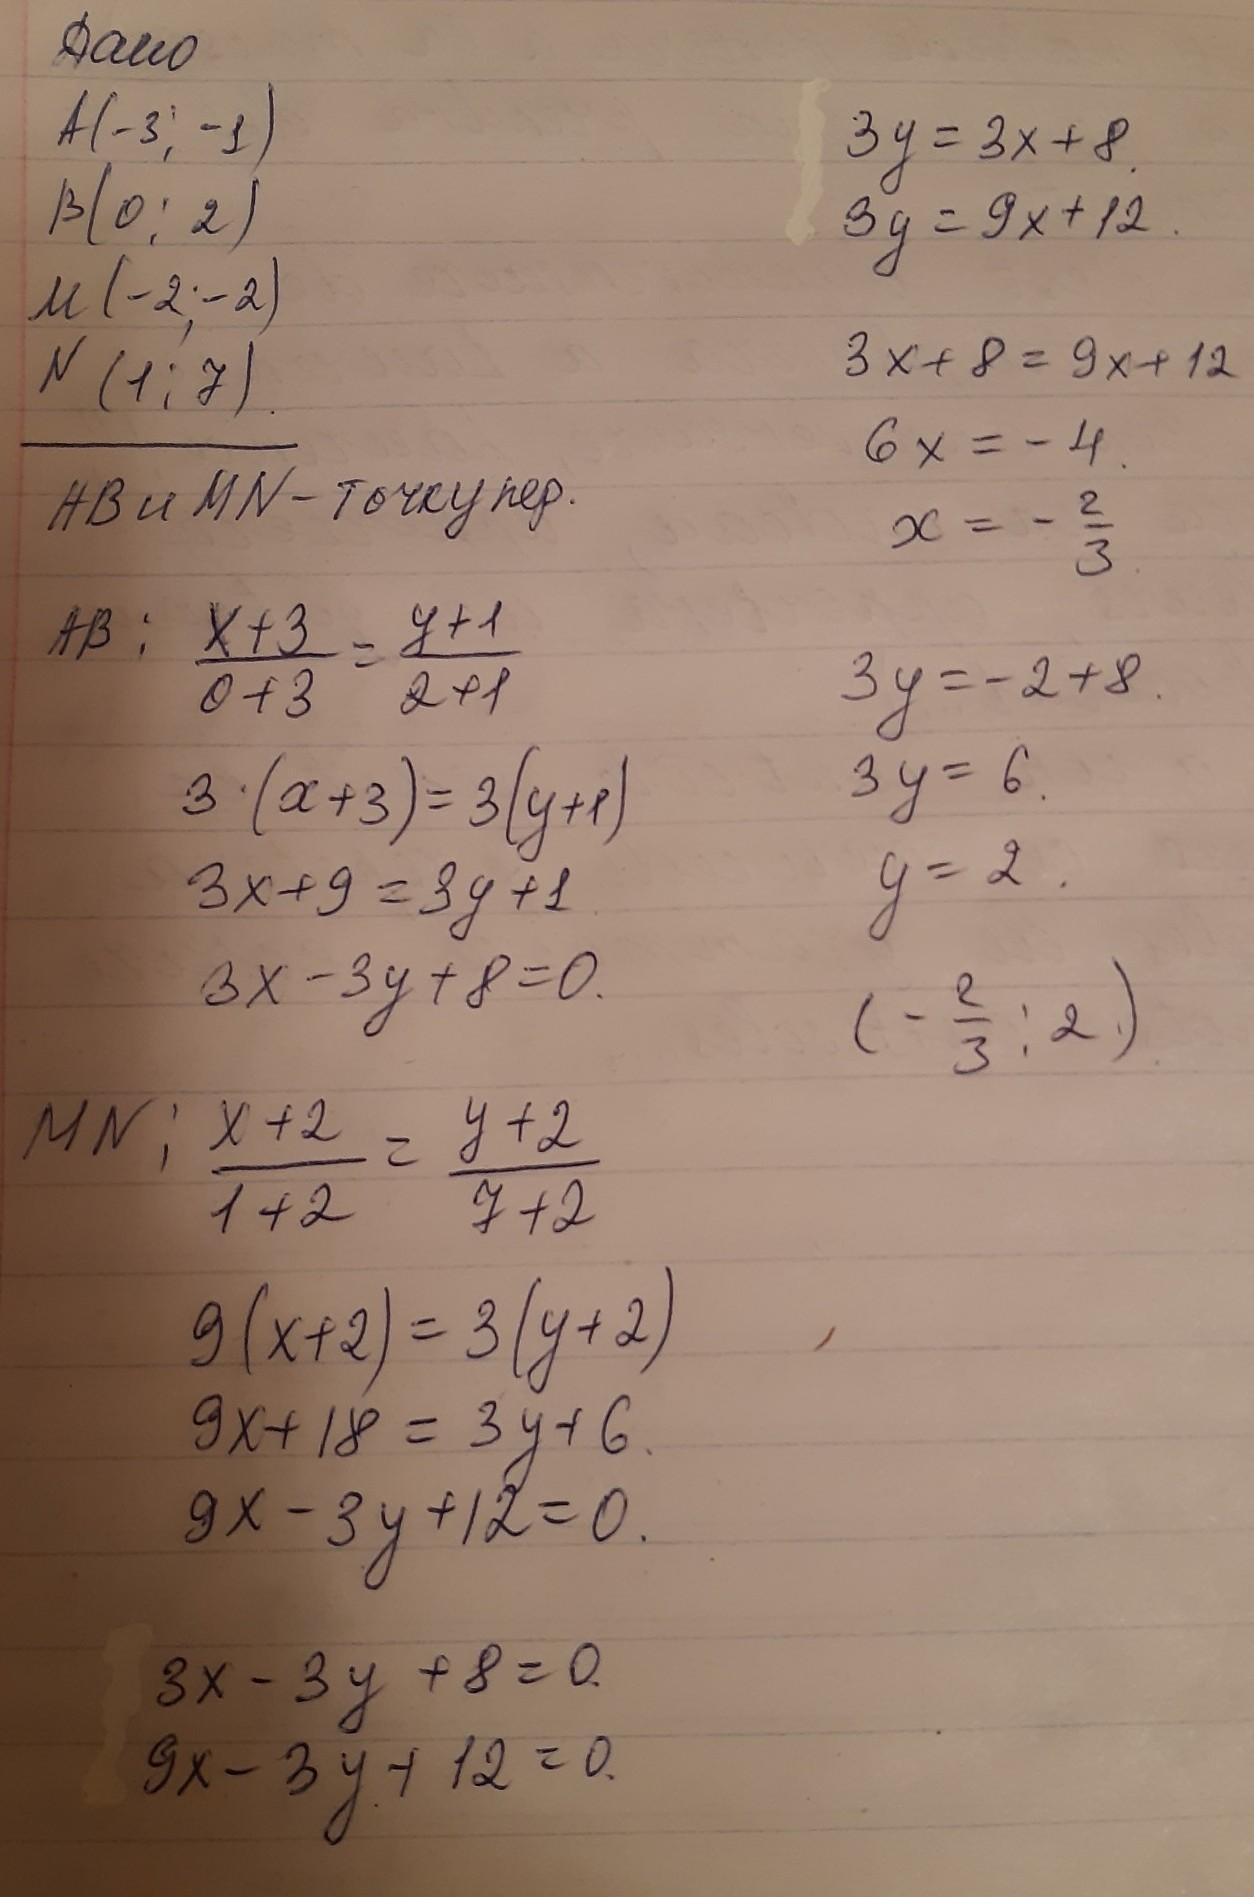 Дано
A(-3; -1)
B(0; 2)
M(-2; -2)
N(1; 7).
AB и MN - точку пер.
AB: (x+3)/(0+3) = (y+1)/(2+1)
3·(x+3) = 3(y+1)
3x+9 = 3y+1
3x-3y+8=0.
MN: (x+2)/(1+2) = (y+2)/(7+2)
9(x+2) = 3(y+2)
9x+18 = 3y+6.
9x-3y+12=0.
3x-3y+8=0.
9x-3y+12=0.
3y=3x+8.
3y=9x+12.
3x+8=9x+12
6x=-4.
x=-2/3.
3y=-2+8.
3y=6.
y=2.
(-2/3; 2.).